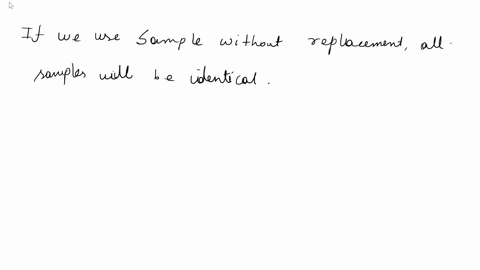 If we use Sample without replacement, all.
samples will be identical.